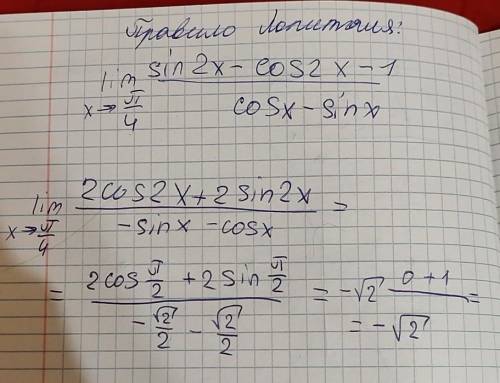 Правило Лопиталя:
lim x→π/4 (sin2x - cos2x - 1)/(cosx - sinx)
lim x→π/4 (2cos2x + 2sin2x)/(-sinx - cosx) =
= (2cos π/2 + 2sin π/2)/(-√2/2 - √2/2) = -√2 (0+1)/ =
= -√2